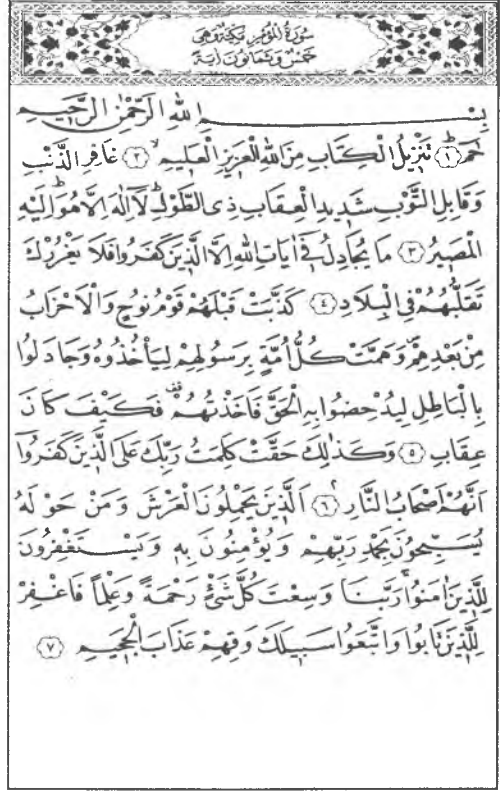 سُورَةُ الْمُؤْمِنِ مَكِّيَّةٌ وَهِيَ
خَمْسٌ وَثَمَانُونَ اٰيَةً
بِسْمِ اللّٰهِ الرَّحْمٰنِ الرَّحٖيمِ
حٰمٓ ﴿١﴾ تَنْزٖيلُ الْكِتَابِ مِنَ اللّٰهِ الْعَزٖيزِ الْعَلٖيمِ ﴿٢﴾ غَافِرِ الذَّنْبِ
وَقَابِلِ التَّوْبِ شَدٖيدِ الْعِقَابِ ذِى الطَّوْلِ لَٓا اِلٰهَ اِلَّا هُوَ اِلَيْهِ
الْمَصٖيرُ ﴿٣﴾ مَا يُجَادِلُ فٖٓى اٰيَاتِ اللّٰهِ اِلَّا الَّذٖينَ كَفَرُوا فَلَا يَغْرُرْكَ
تَقَلُّبُهُمْ فِى الْبِلَادِ ﴿٤﴾ كَذَّبَتْ قَبْلَهُمْ قَوْمُ نُوحٍ وَالْاَحْزَابُ
مِنْ بَعْدِهِمْ وَهَمَّتْ كُلُّ اُمَّةٍ بِرَسُولِهِمْ لِيَاْخُذُوهُ وَجَادَلُوا
بِالْبَاطِلِ لِيُدْحِضُوا بِهِ الْحَقَّ فَاَخَذْتُهُمْ فَكَيْفَ كَانَ
عِقَابِ ﴿٥﴾ وَكَذٰلِكَ حَقَّتْ كَلِمَتُ رَبِّكَ عَلَى الَّذٖينَ كَفَرُٓوا
اَنَّهُمْ اَصْحَابُ النَّارِ ﴿٦﴾ اَلَّذٖينَ يَحْمِلُونَ الْعَرْشَ وَمَنْ حَوْلَهُ
يُسَبِّحُونَ بِحَمْدِ رَبِّهِمْ وَيُؤْمِنُونَ بِهٖ وَيَسْتَغْفِرُونَ
لِلَّذٖينَ اٰمَنُوا رَبَّنَا وَسِعْتَ كُلَّ شَیْءٍ رَحْمَةً وَعِلْمًا فَاغْفِرْ
لِلَّذٖينَ تَابُوا وَاتَّبَعُوا سَبٖيلَكَ وَقِهِمْ عَذَابَ الْجَحٖيمِ ﴿٧﴾